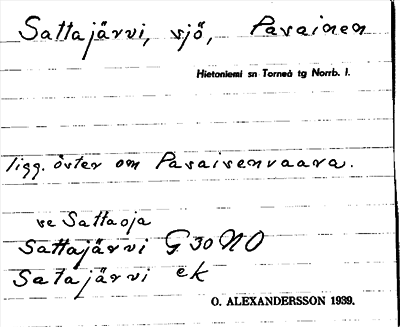 Sattajärvi, sjö, Pasainen
Hietoniemi sn Torneå tg Norrb. l.
ligg. öster om Pasaisenvaara.
se Sattaoja
Sattajärvi G 30 NO
Satajärvi ek
O. ALEXANDERSSON 1939.